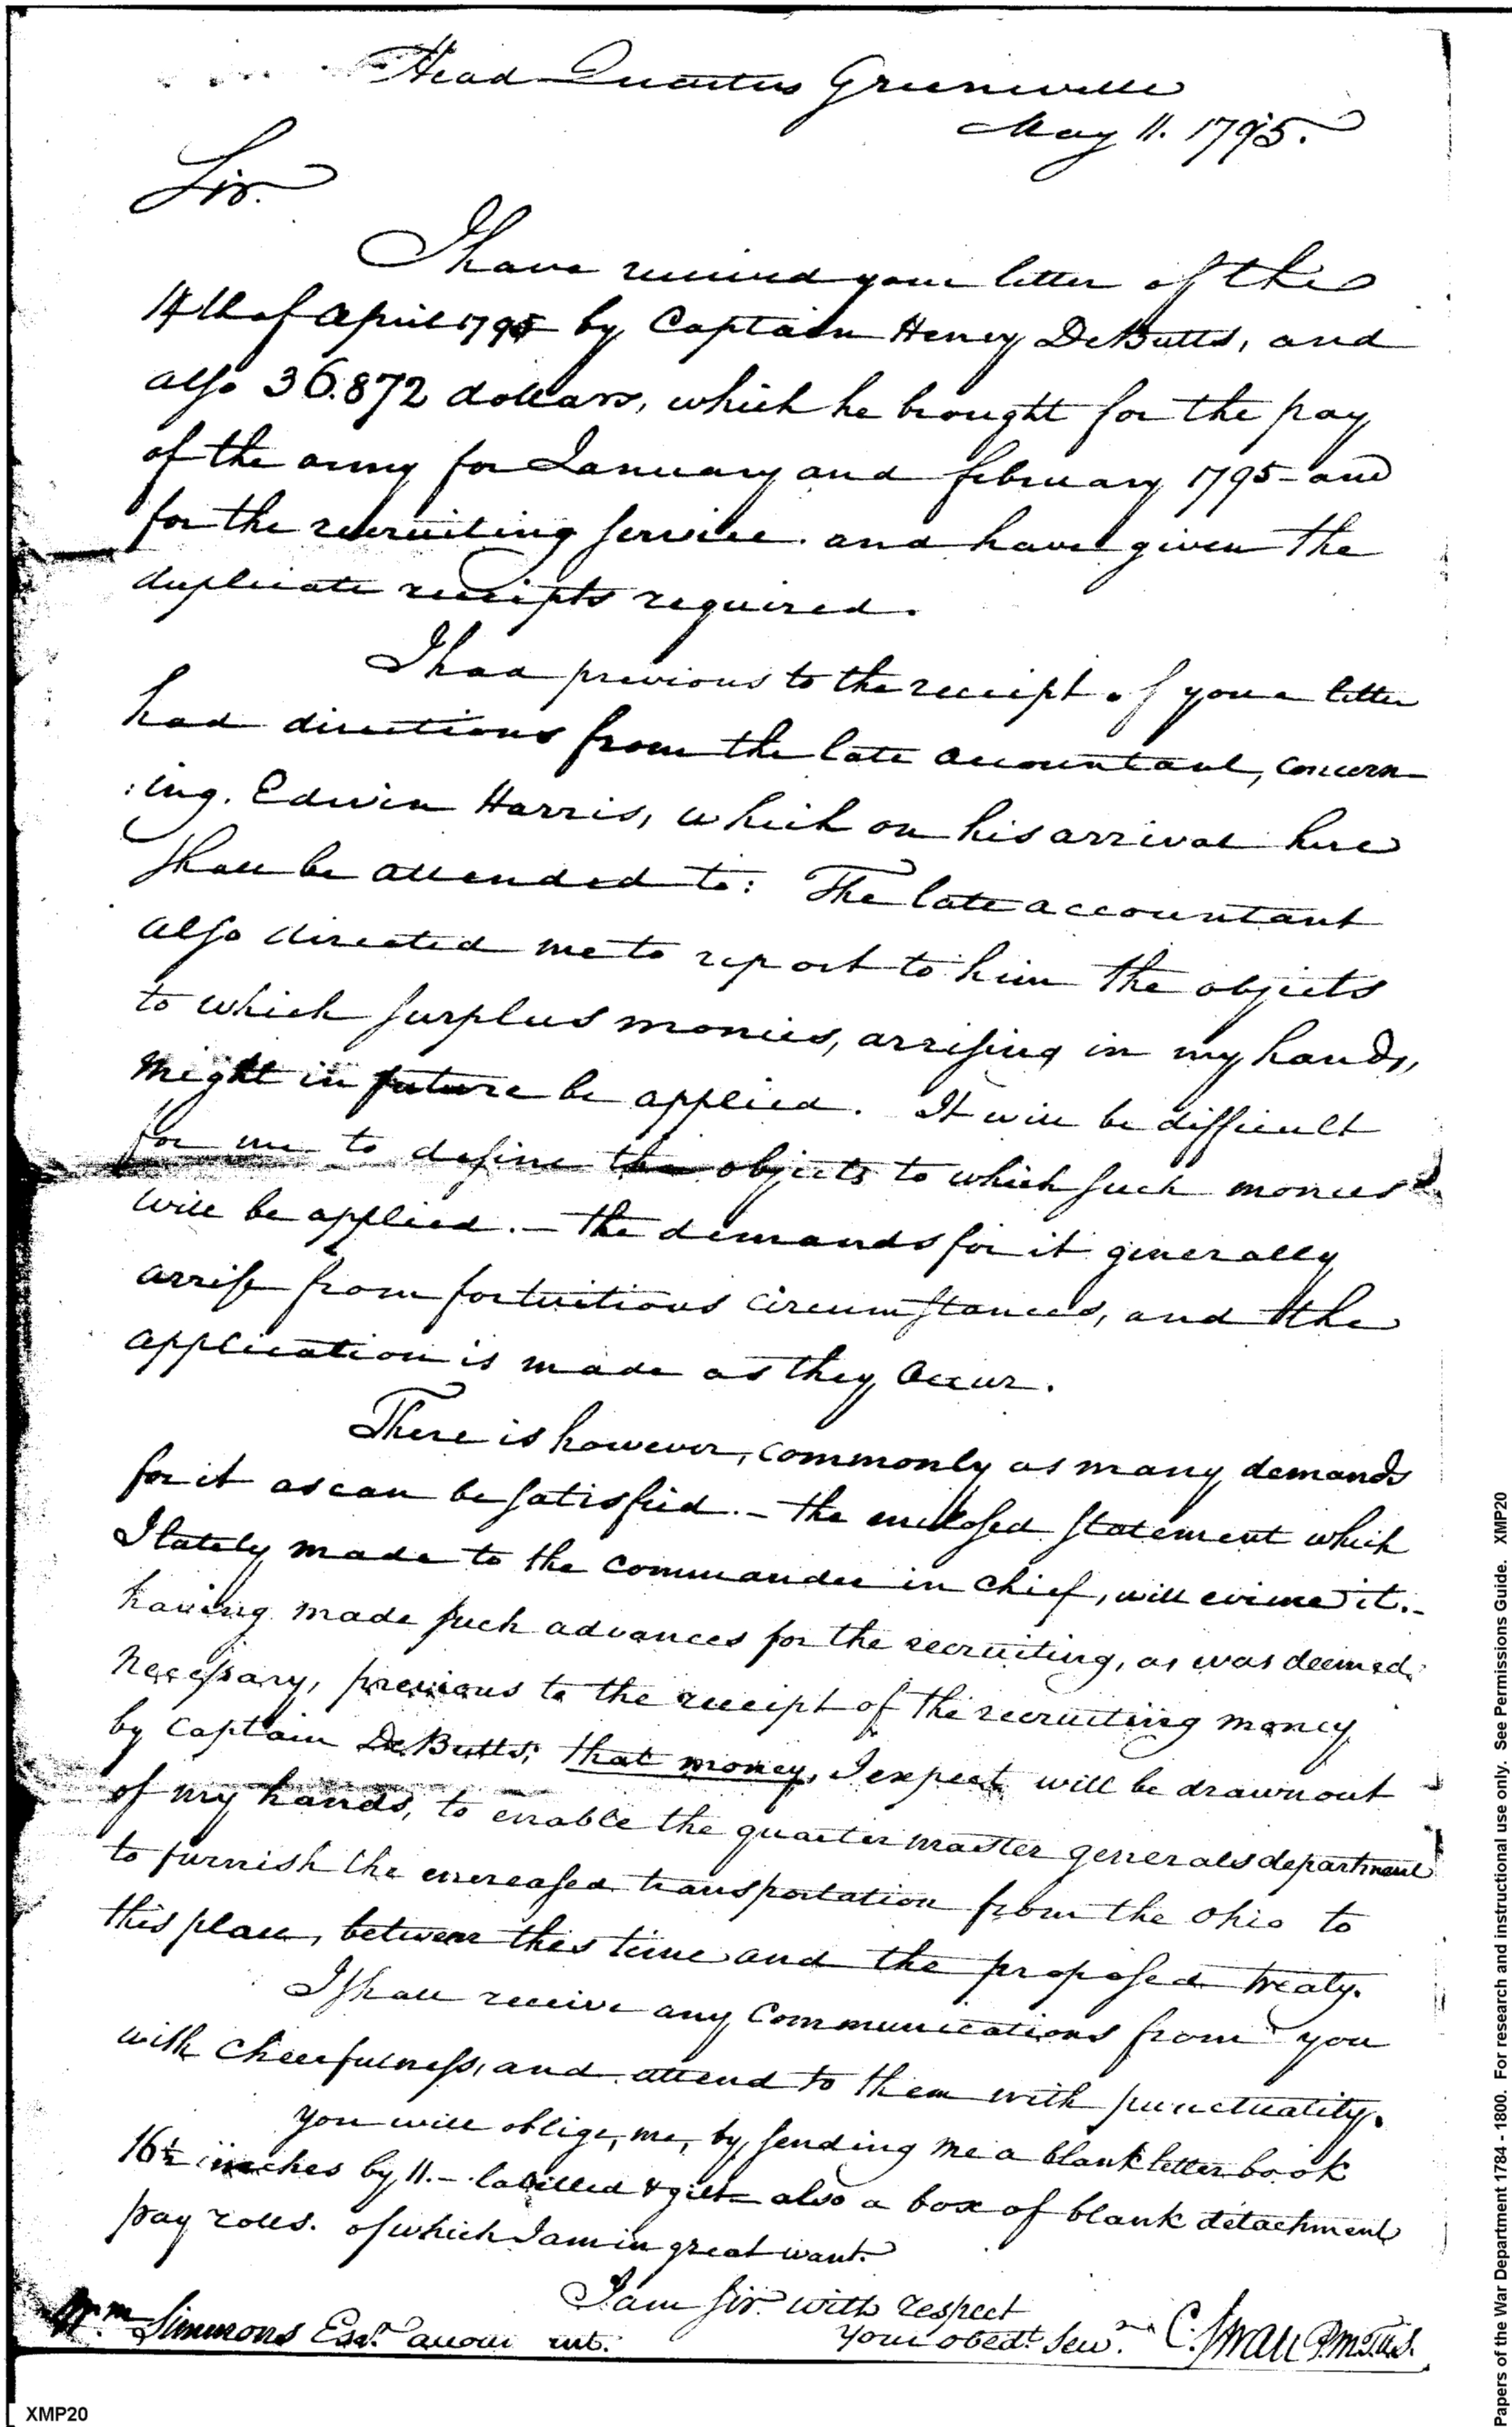 Head Quarters Greeneville
May 11. 1795.
Sir.
I have received your letter of the
14th of April 1795 by Captain Henry DeButts, and
also 36.872 dollars, which he brought for the pay
of the army for January and february 1795 - and
for the recruiting service. and have given the
duplicate receipts required.
I had previous to the receipt of your letter
had directions from the late accountant, concern
:ing. Edwin Harris, which on his arrival here
shall be attended to: The late accountant
also directed me to report to him the objects
to which surplus monies, arrising in my hands,
might in future be applied. It will be difficult
for me to define the objects to which such monies
will be applied. - the demands for it generally
arrise from fortuitious circumstances, and the
application is made as they occur.
There is however, commonly as many demands
for it as can be satisfied. - the enclosed statement which
I lately made to the commander in chief, will evince it. -
having made such advances for the recruiting, as was deemed
necessary, previous to the receipt of the recruiting money
by Captain DeButts; that money, I expect will be drawn out
of my hands, to enable the quarter master generals department
to furnish the encreased transportation from the Ohio to
this place, between this time and the proposed treaty.
I shall receive any communications from you
with cheerfulness, and attend to them with punctuality.
You will oblige, me, by sending me a blank letter book
16½ inches by 11. - labelled & gilt also a box of blank detachment
pay rolls. of which I am in great want.
I am sir. with respect
Wm Simmons Esqr. accountant. your obedt. Servt. C. Swan P.M.T.U.S.
XMP20
Papers of the War Department 1784 - 1800. For research and instructional use only. See Permissions Guide. XMP20